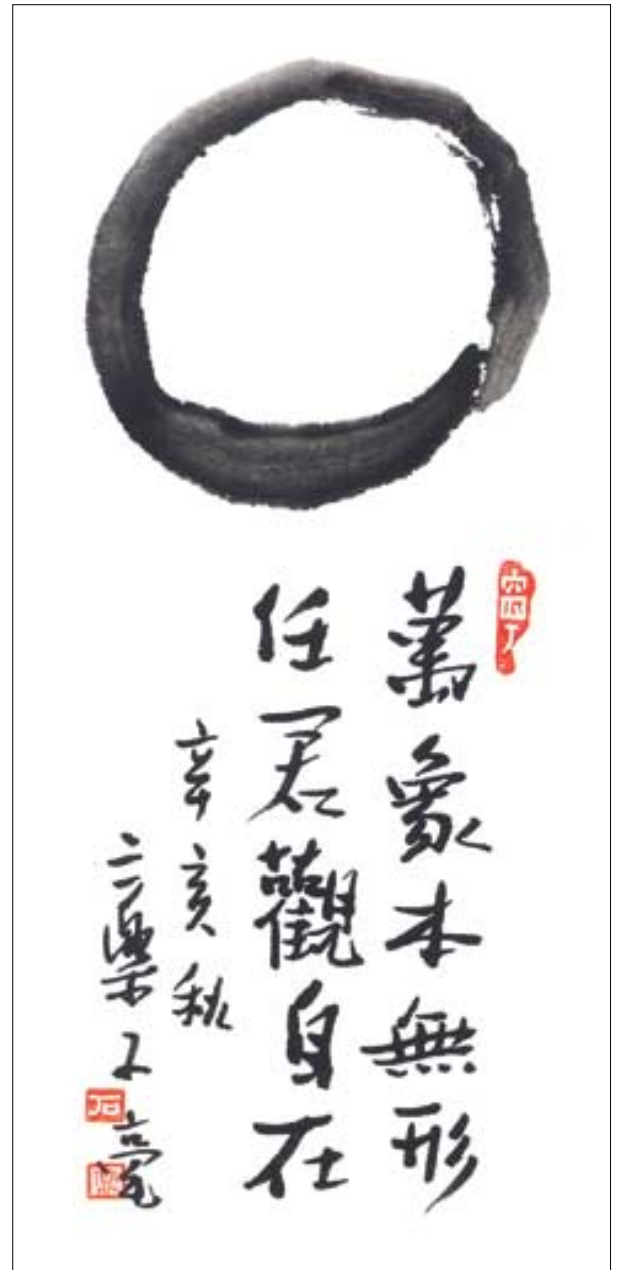 萬象本無形
任君觀自在
辛亥秋